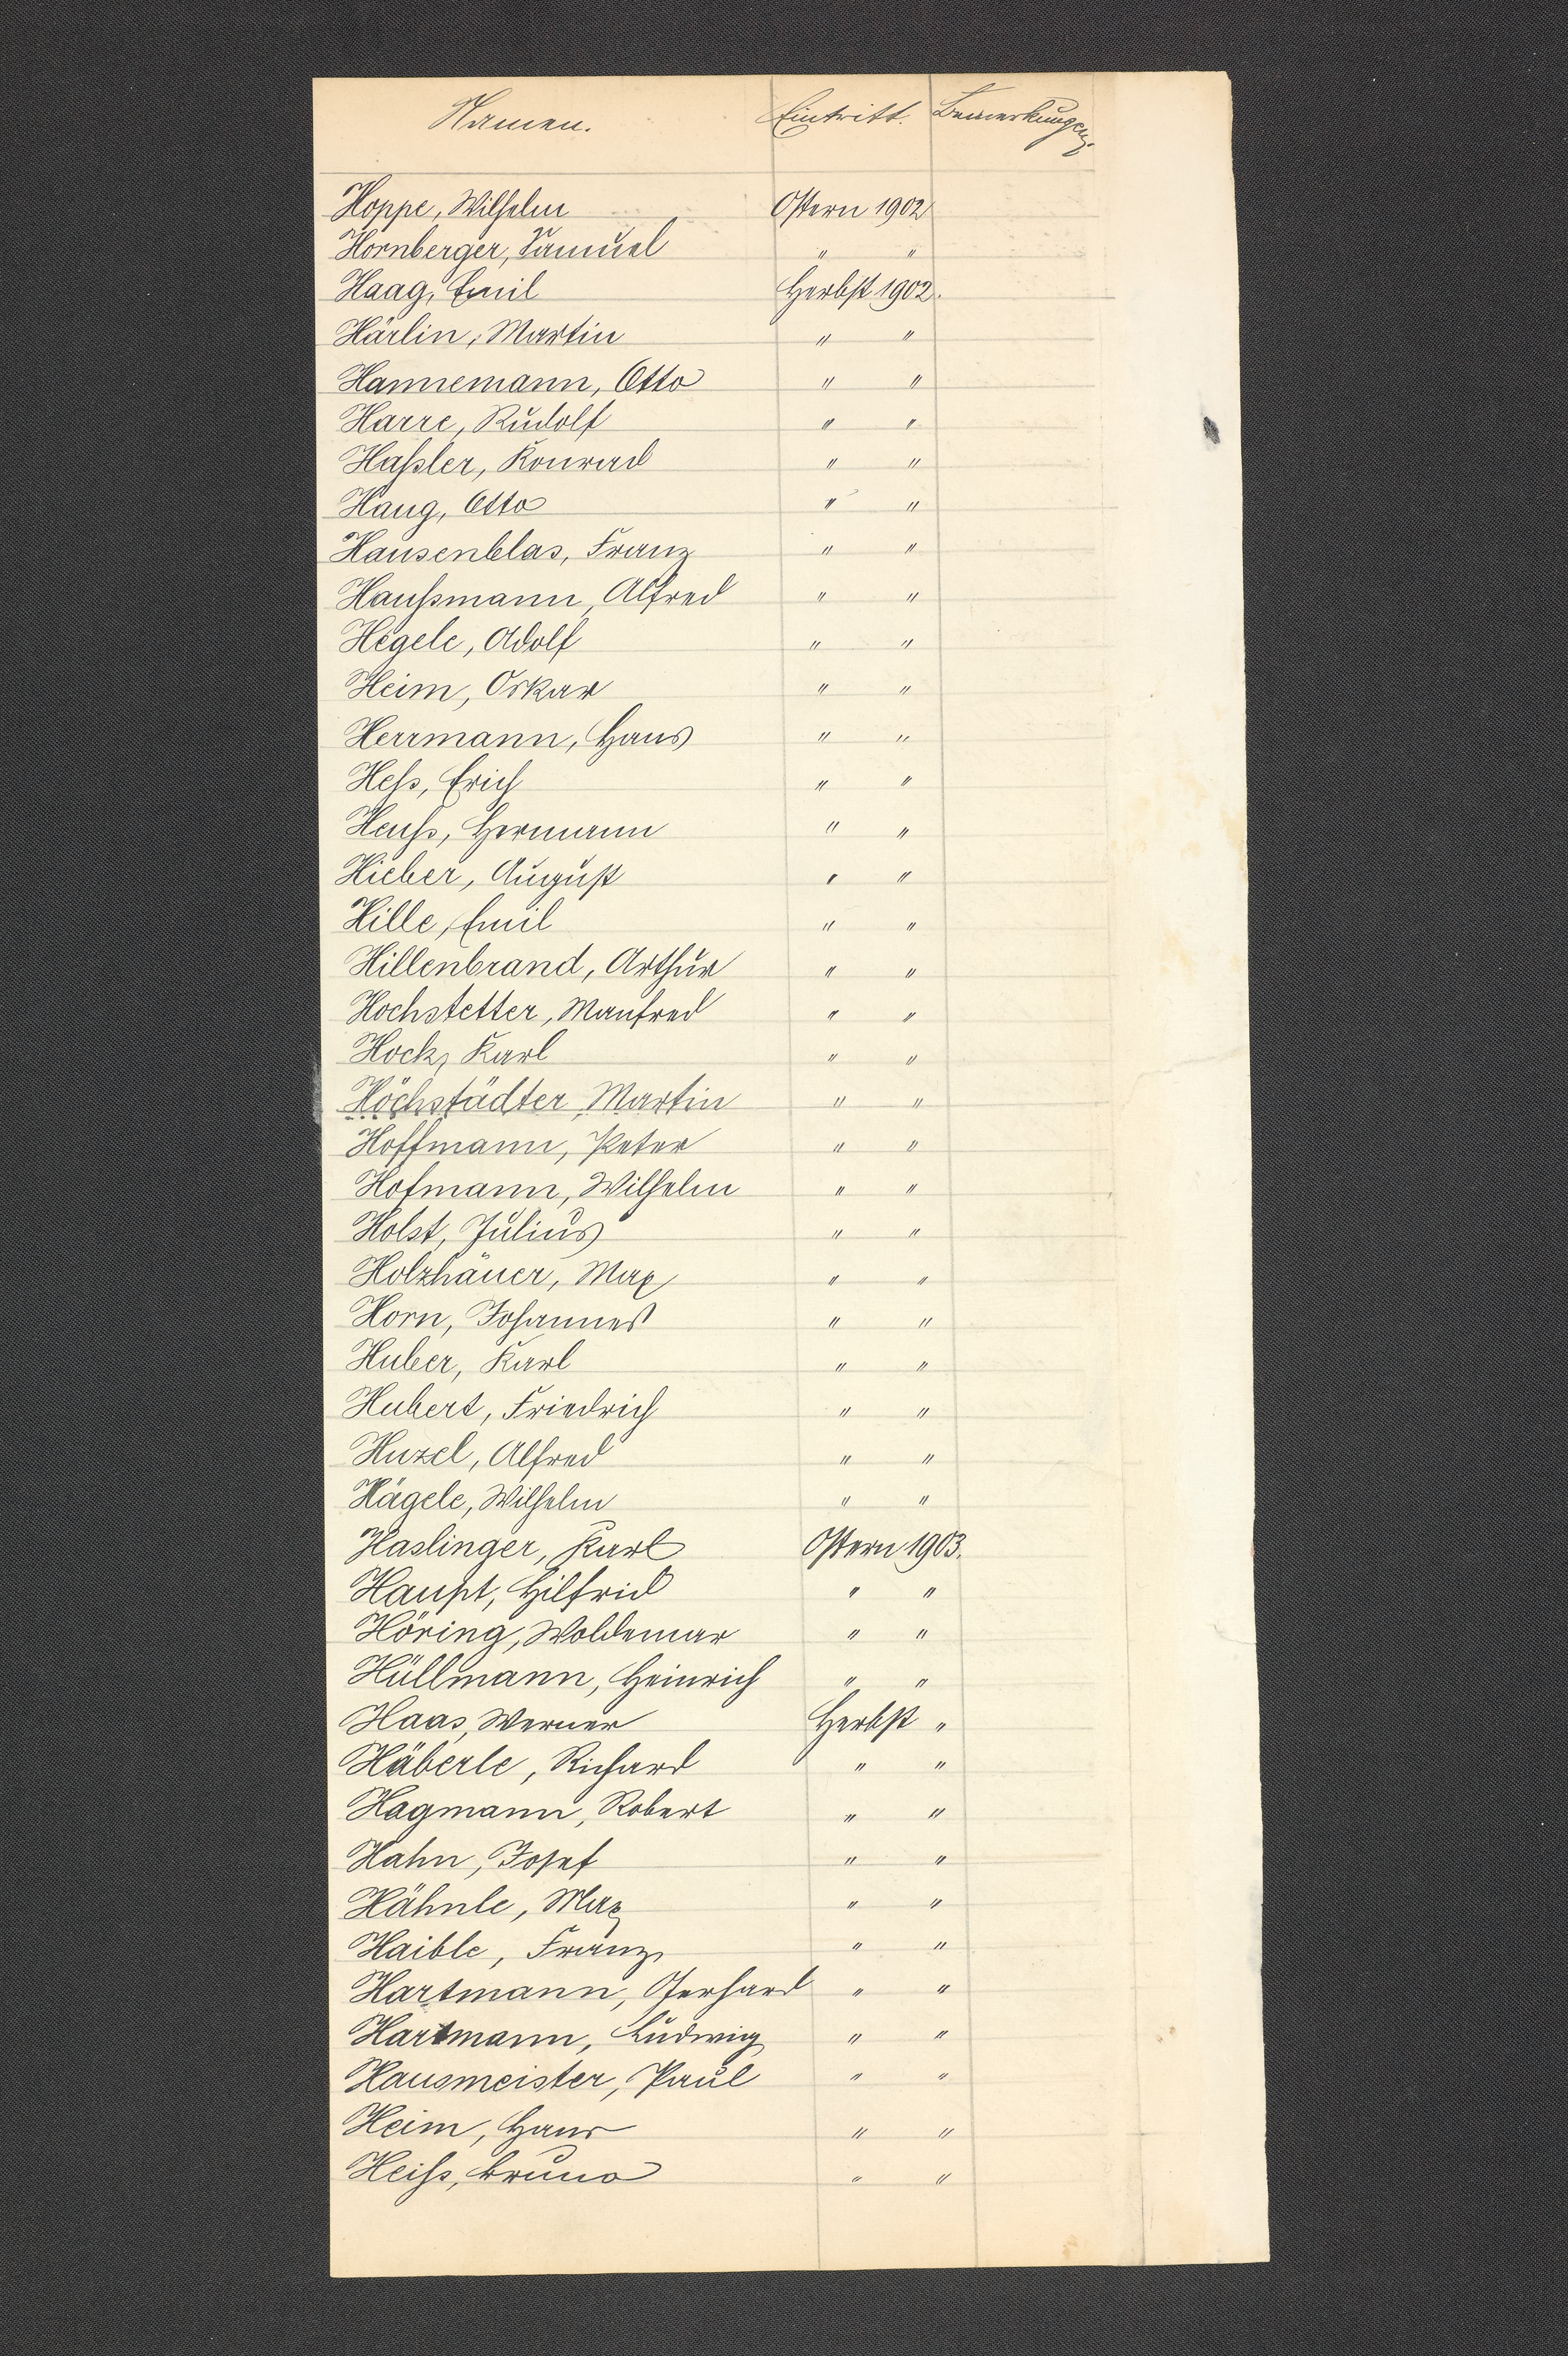 Namen. Eintritt. Bemerkungen.
Hoppe, Wilhelm Ostern 1902
Hornberger, Samuel " "
Haag, Emil Herbst 1902.
Härlin, Martin " "
Hannemann, Otto " "
Harre, Rudolf " "
Haßler, Konrad " "
Haug, Otto " "
Hausenblas, Franz " "
Haußmann, Alfred " "
Hegele, Adolf " "
Heim, Oskar " "
Herrmann, Hans " "
Heß, Erich " "
Heuß, Hermann " "
Hieber, August " "
Hille, Emil " "
Hillenbrand, Arthur " "
Hochstetter, Manfred " "
Hock, Karl " "
Höchstädter, Martin " "
Hoffmann, Peter " "
Hofmann, Wilhelm " "
Holst, Julius " "
Holzhäuer, Max " "
Horn, Johannes " "
Huber, Karl " "
Hubert, Friedrich " "
Huzel, Alfred " "
Hägele, Wilhelm " "
Haslinger, Karl Ostern 1903.
Haupt, Hilfrid " "
Höring, Woldemar " "
Hüllmann, Heinrich " "
Haas, Werner Herbst "
Häberle, Richard " "
Hagmann, Robert " "
Hahn, Josef " "
Hähnle, Max " "
Haible, Franz " "
Hartmann, Gerhard " "
Hartmann, Ludwig " "
Hausmeister, Paul " "
Heim, Hans " "
Heiß, Bruno " "